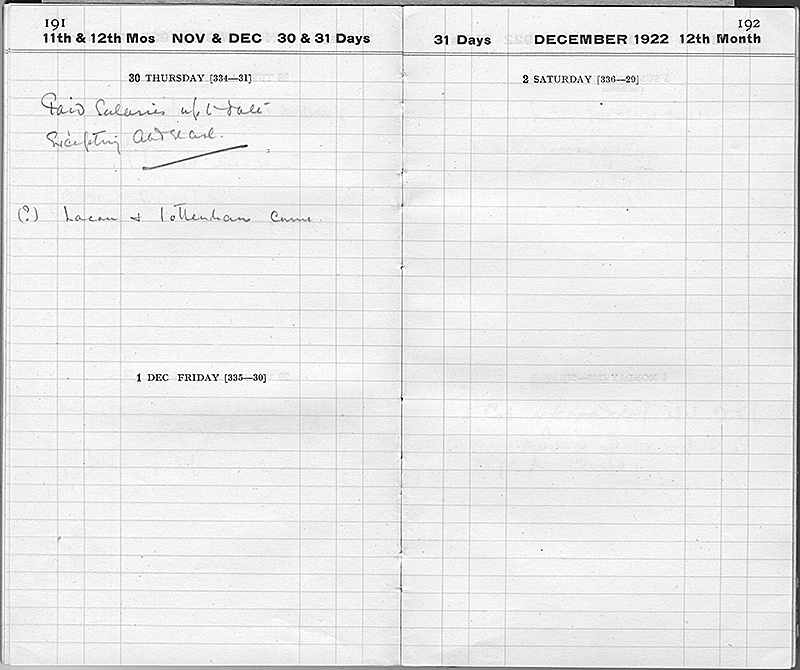 191
11th & 12th Mos NOV & DEC 30 & 31 Days
30 THURSDAY [334—31]
Paid Salaries up to date
Excepting Abd el Aal.
(?) Lacau & Tottenham came.
1 DEC FRIDAY [335—30]
192
31 Days DECEMBER 1922 12th Month
2 SATURDAY [336—29]